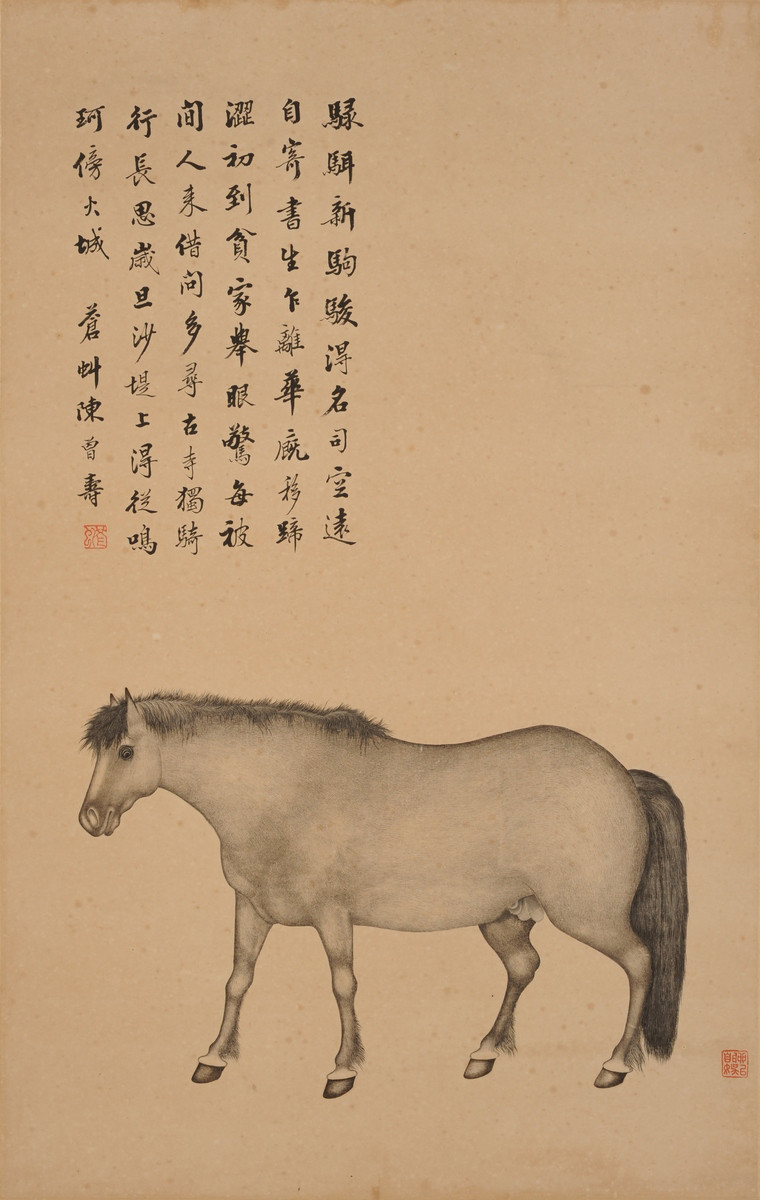 騄駬新駒駿得名司空遠
自寄書生乍離華廄移蹄
澀初到貧家舉眼驚每被
間人來借問多尋古寺獨騎
行長思歲旦沙堤上得從鳴
珂傍火城 蒼虯陳曾壽